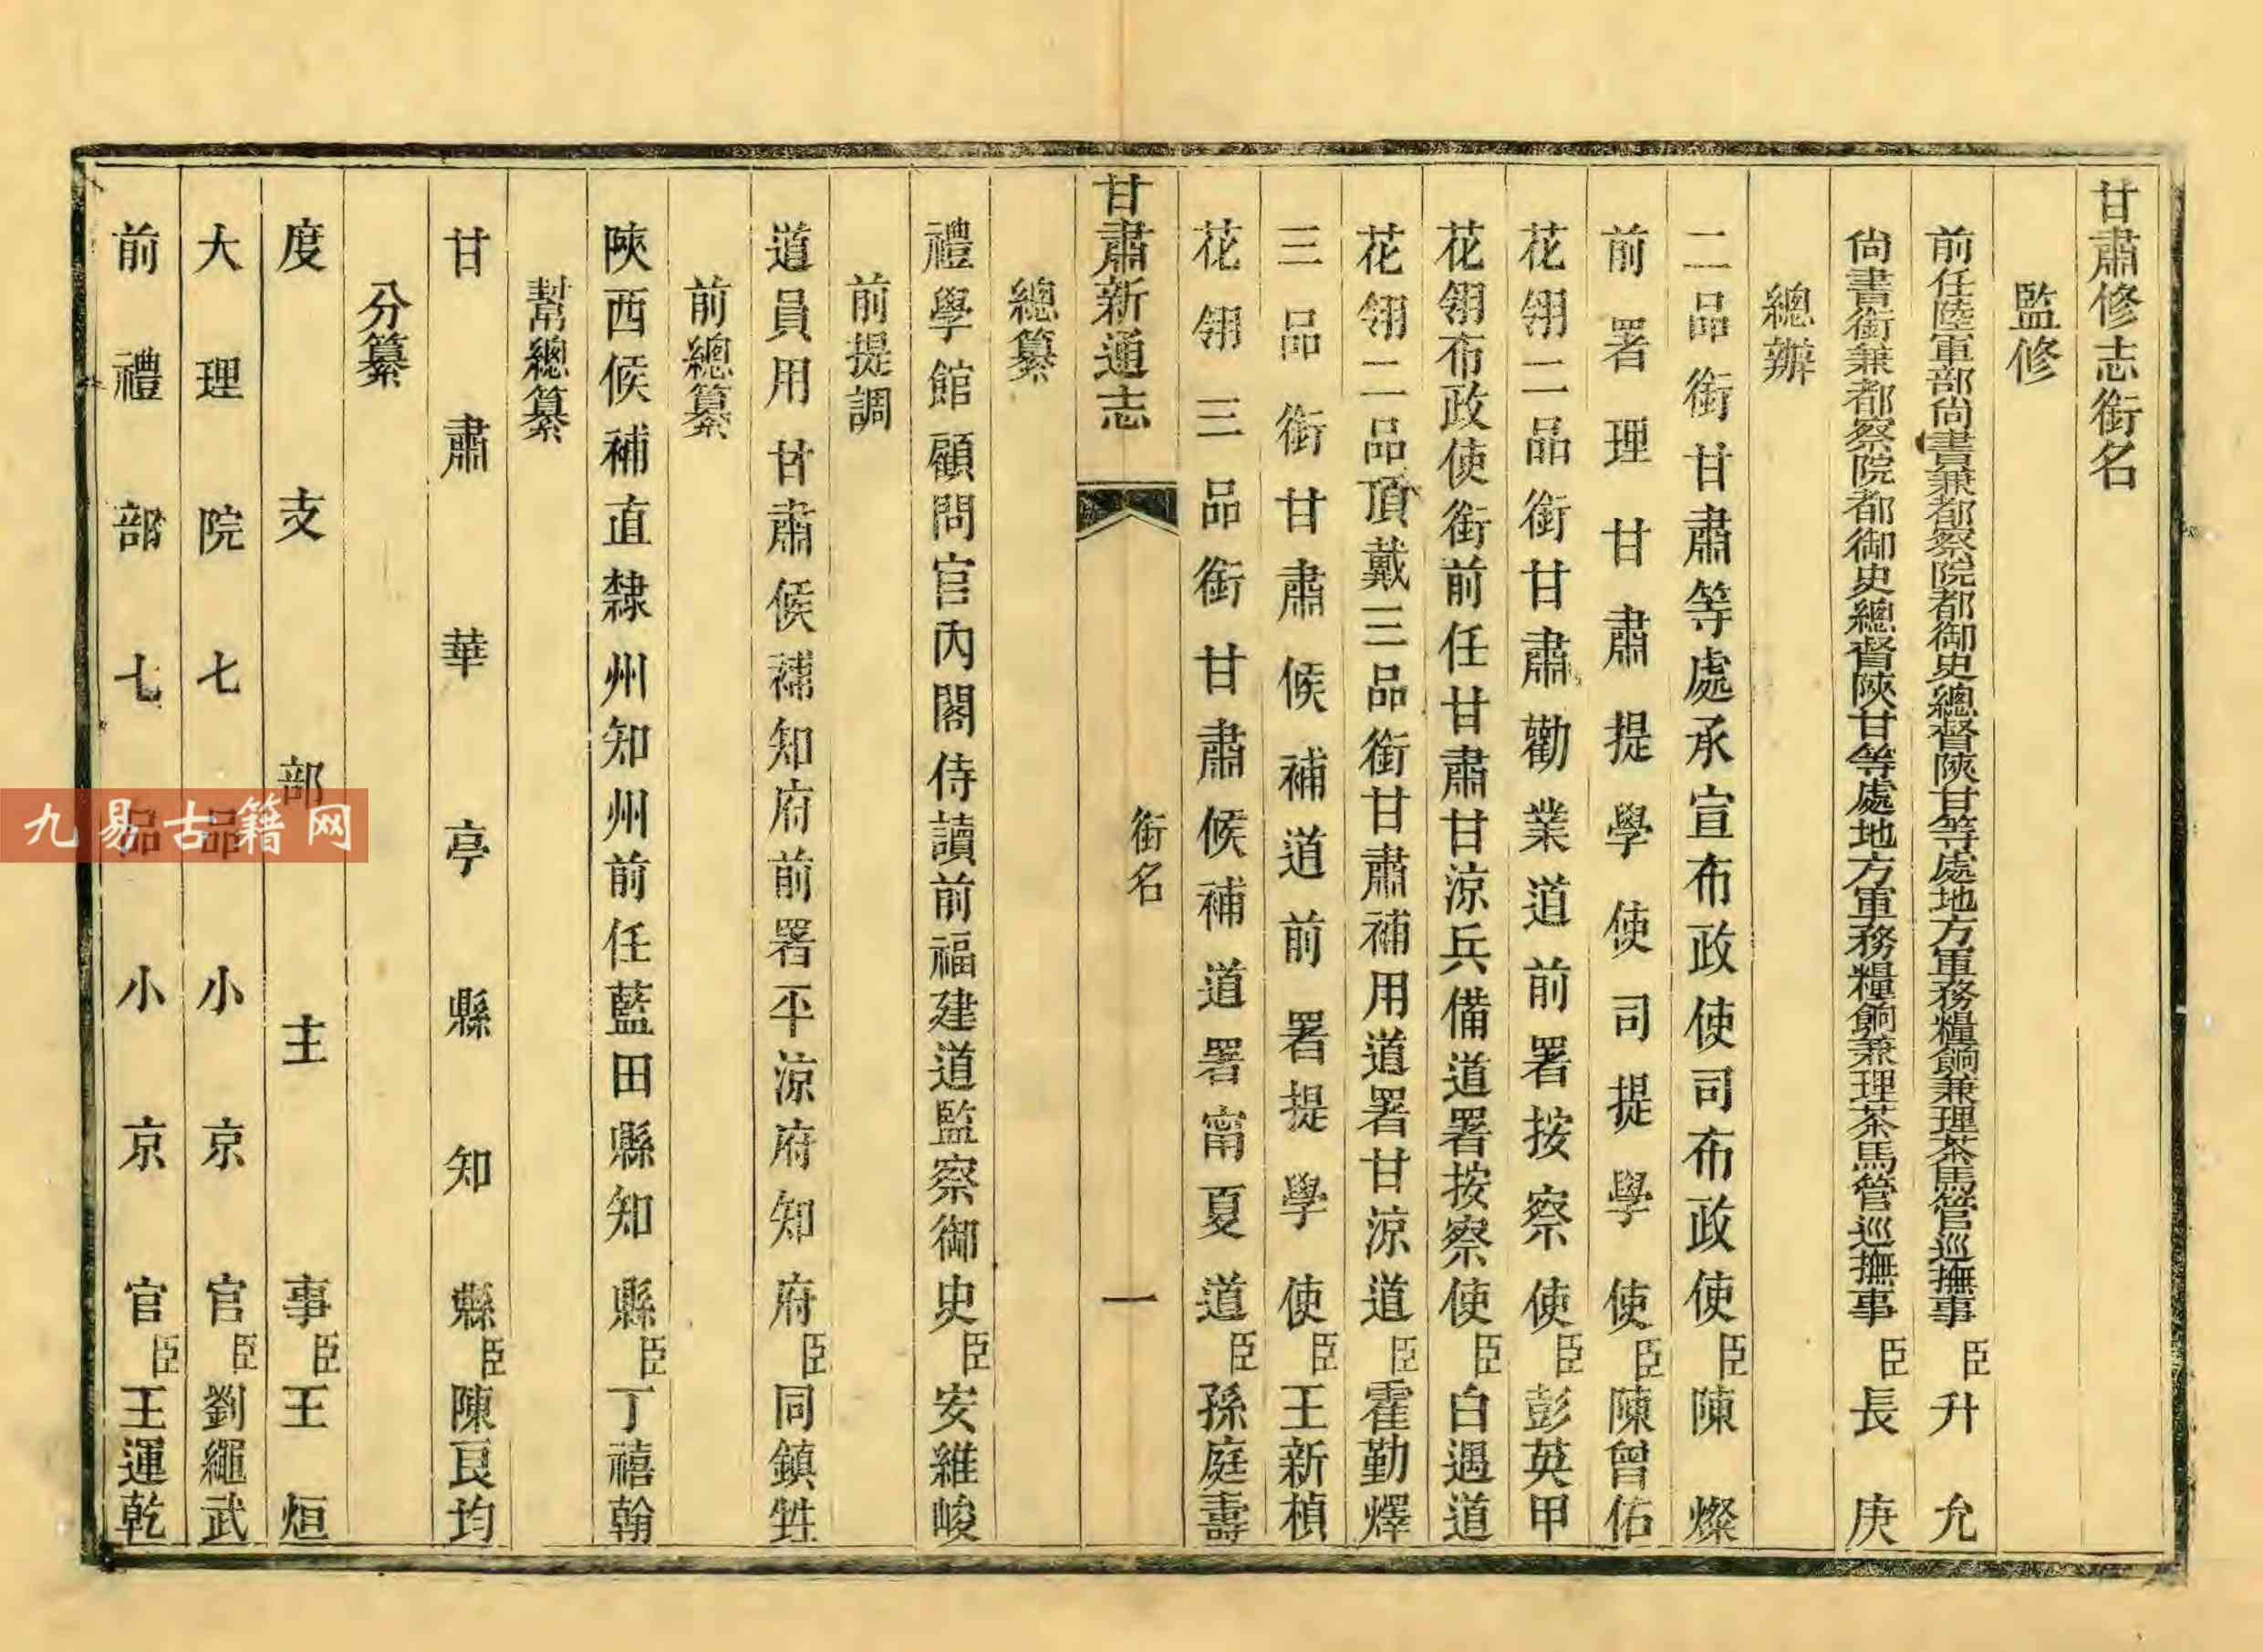 甘肅修志銜名
監修
前任陸軍部尙書兼都察院都御史總督陝甘等處地方軍務糧餉兼理茶馬管巡撫事臣升允
尙書銜兼都察院都御史總督陝甘等處地方軍務糧餉兼理茶馬管巡撫事臣長庚
總辦
二品銜甘肅等處承宣布政使司布政使臣陳燦
前署理甘肅提學使司提學使臣陳曾佑
花翎二品銜甘肅勸業道前署按察使臣彭英甲
花翎布政使銜前任甘肅甘涼兵備道署按察使臣白遇道
花翎二品頂戴三品銜甘肅補用道署甘涼道臣霍勤燡
三品銜甘肅候補道前署提學使臣王新楨
花翎三品銜甘肅候補道署甯夏道臣孫庭壽
甘肅新通志
銜名
一
總纂
禮學館顧問官內閣侍讀前福建道監察御史臣安維峻
前提調
道員用甘肅候補知府前署平涼府知府臣同鎮甡
前總纂
陝西候補直隸州知州前任藍田縣知縣臣丁禧翰
幫總纂
甘肅華亭縣知縣臣陳艮均
分纂
度支部主事臣王烜
大理院七品小京官臣劉繩武
前禮部七品小京官臣王運乾
九易古籍网